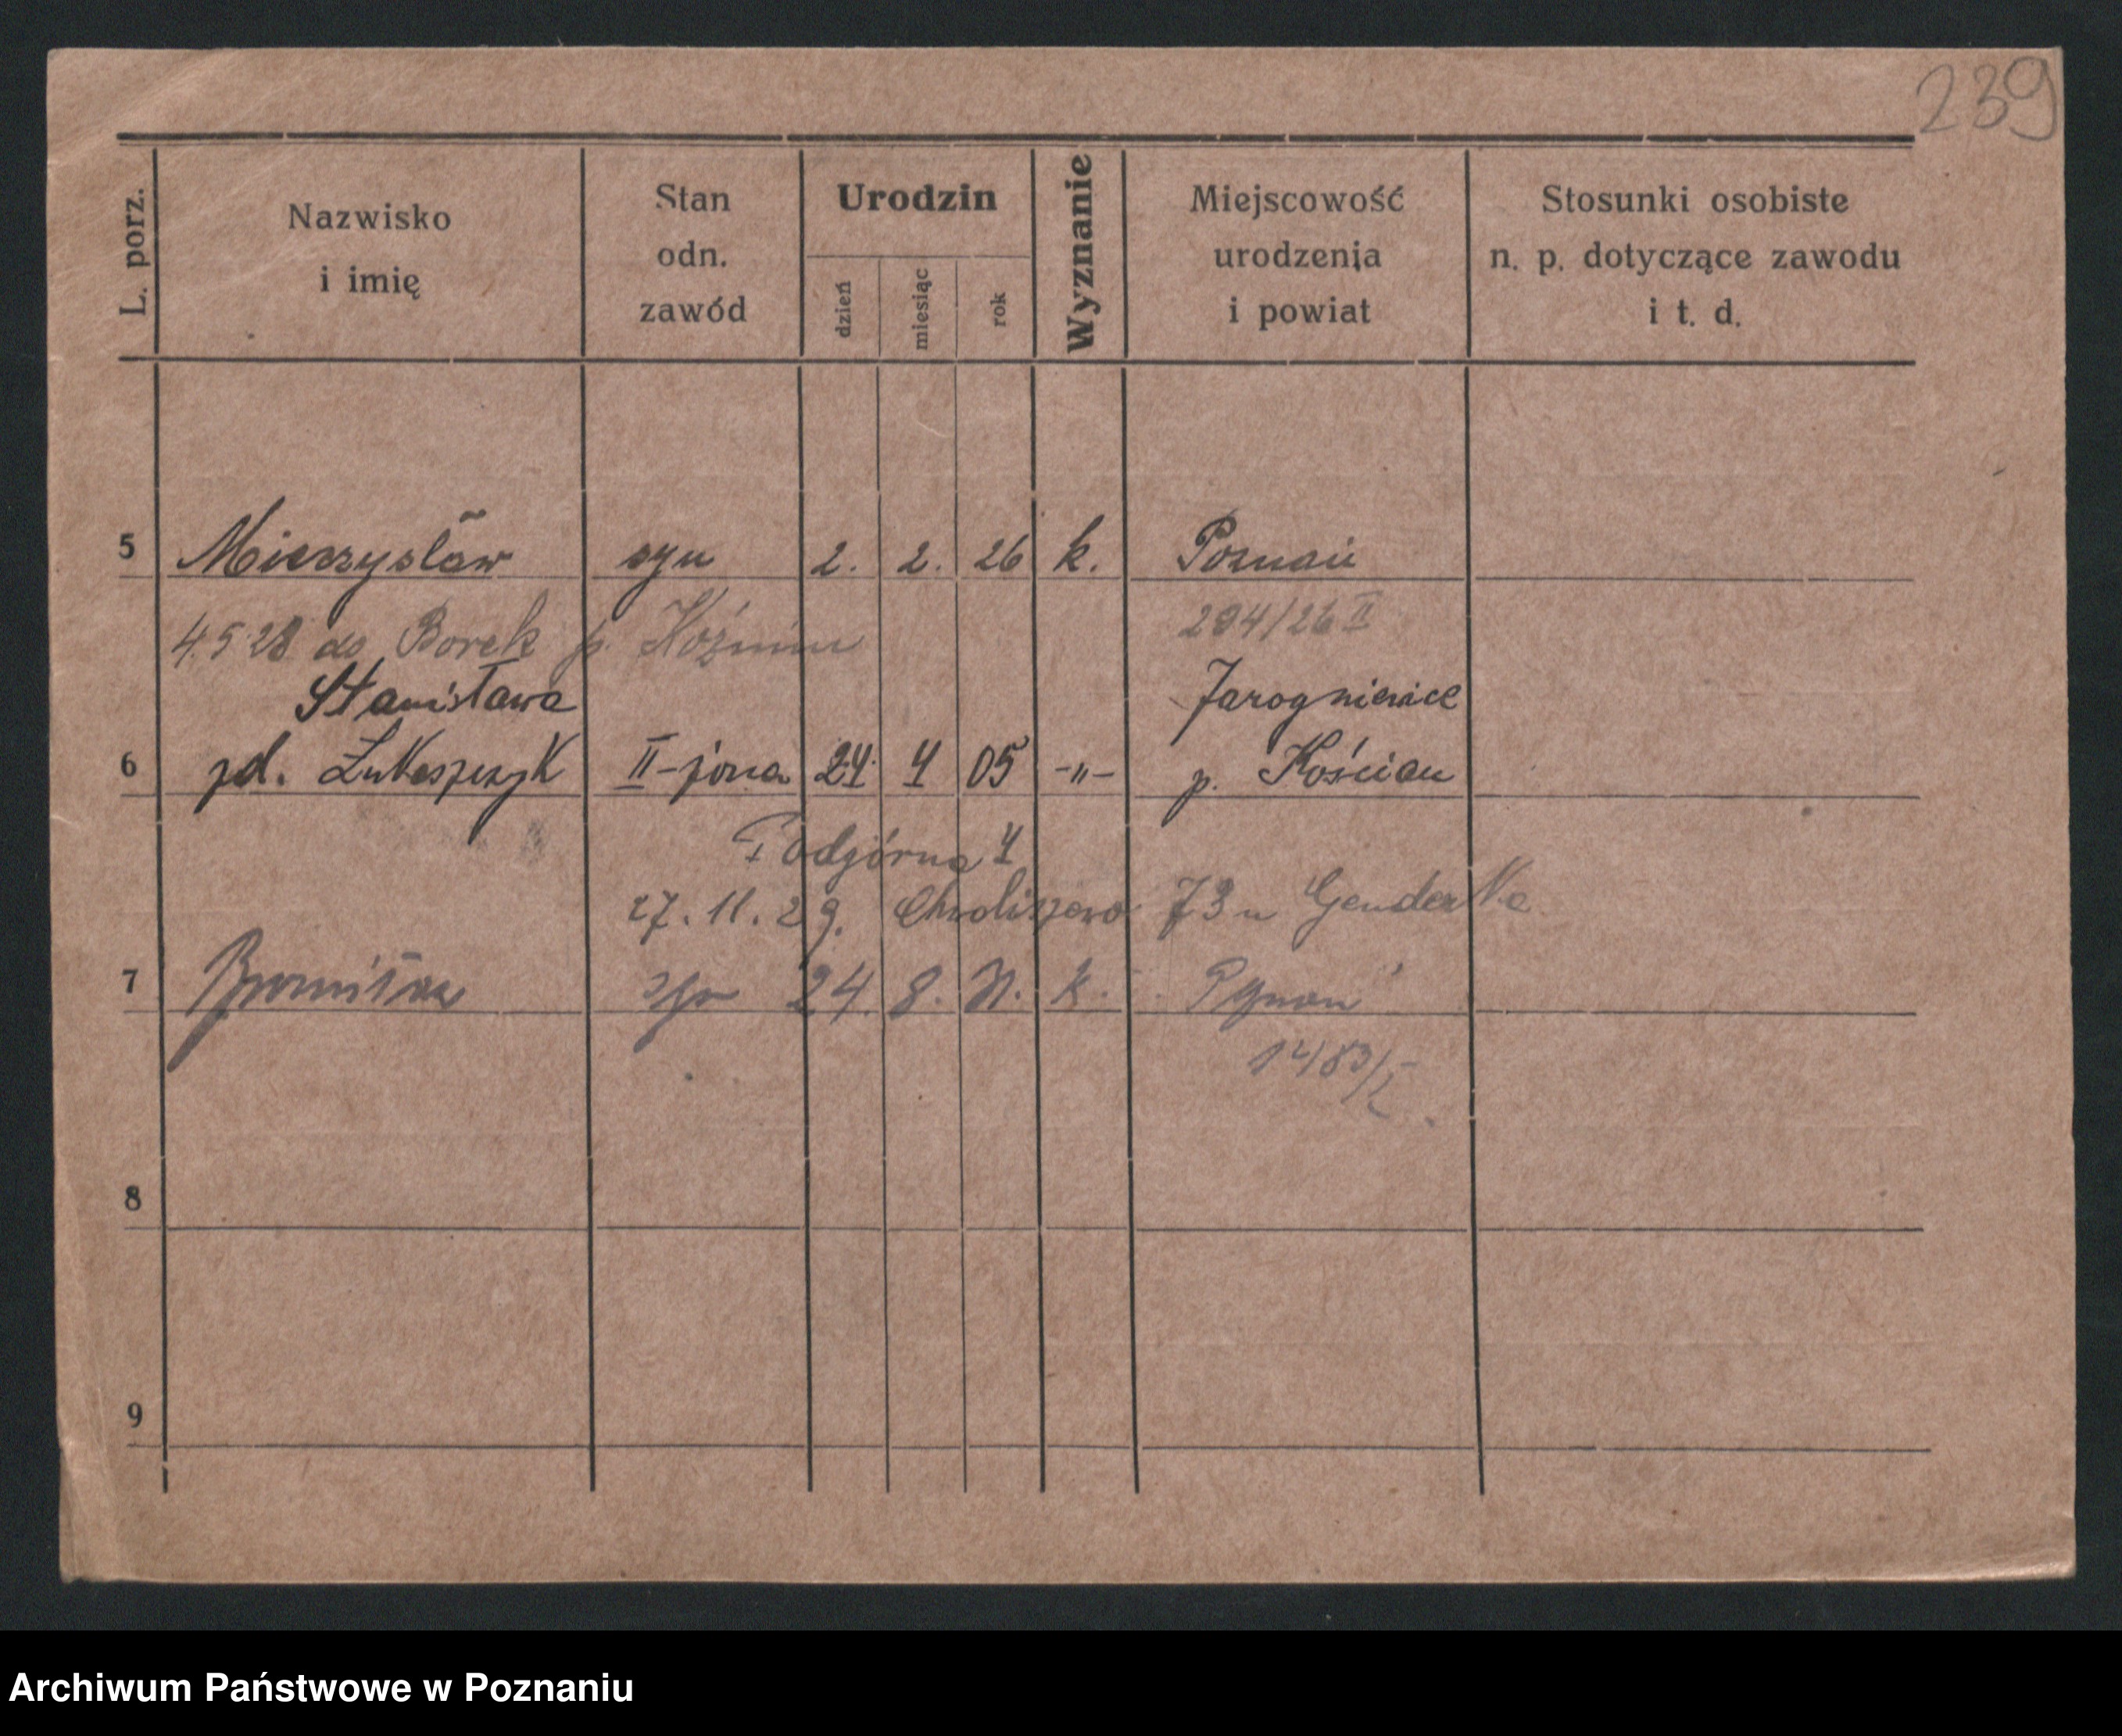 239
L. porz.
Nazwisko
i imię
Stan
odn.
zawód
Urodzin
dzień
miesiąc
rok
Wyznanie
Miejscowość
urodzenia
i powiat
Stosunki osobiste
n. p. dotyczące zawodu
i t. d.
5 Mieczysław syn 2. 2. 26 k. Poznań
4.5.28 do Borek p. Koźmin 294/26 II
Stanisława Jarogniewice
6 zd. Łukaszczyk II-żona 24. 4 05 -"- p. Kościan
Podgórna 4
27. 11. 29. Chwaliszewo 73 u Genderka
7 Bronisław syn 24. 8. 31. k. Poznań
1483/
8
9
Archiwum Państwowe w Poznaniu